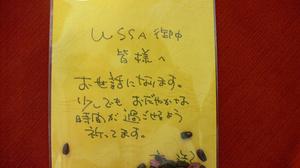 USSA 御中
皆様へ
お世話になります。
少しでも おだやかな
時間が 過ごせるよう
祈ってます。